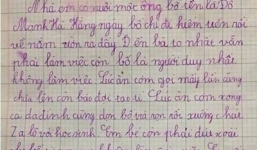 Nhà em có nuôi một ông bố tên là Đỗ
Mạnh Hà. Hàng ngày bố chỉ đi kiếm tiền rồi
về nằm ườn ra đây. Đến bà to nhất vẫn
phải làm việc còn bố là người duy nhất
không làm việc. Lúc ăn cơm gọi mấy lần cũng
chịu lên còn bảo đợi tao tí. Lúc ăn cơm xong
cả gia đình cùng dọn bố và con rồi xuống chơi
Za lô với học sinh. Em bé còn phải đút xoài